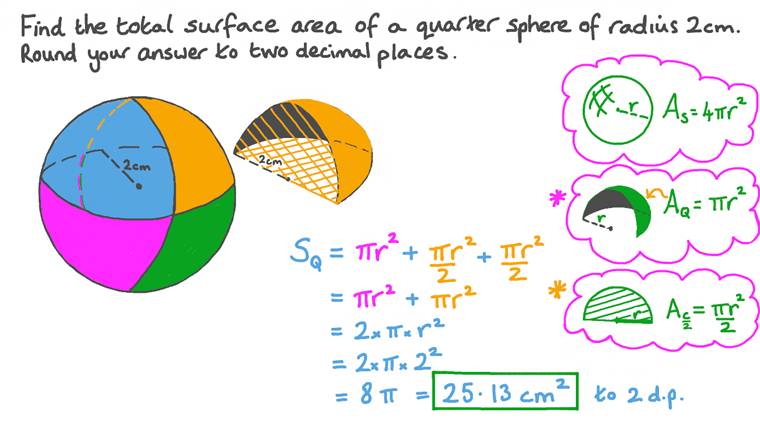 Find the total surface area of a quarter sphere of radius 2cm.
Round your answer to two decimal places.
2cm
2cm
r
A_S = 4πr²
* r
A_Q = πr²
* r
A_{C/2} = πr²/2
S_Q = πr² + πr²/2 + πr²/2
= πr² + πr²
= 2×π×r²
= 2×π×2²
= 8π = 25·13 cm² to 2 d.p.